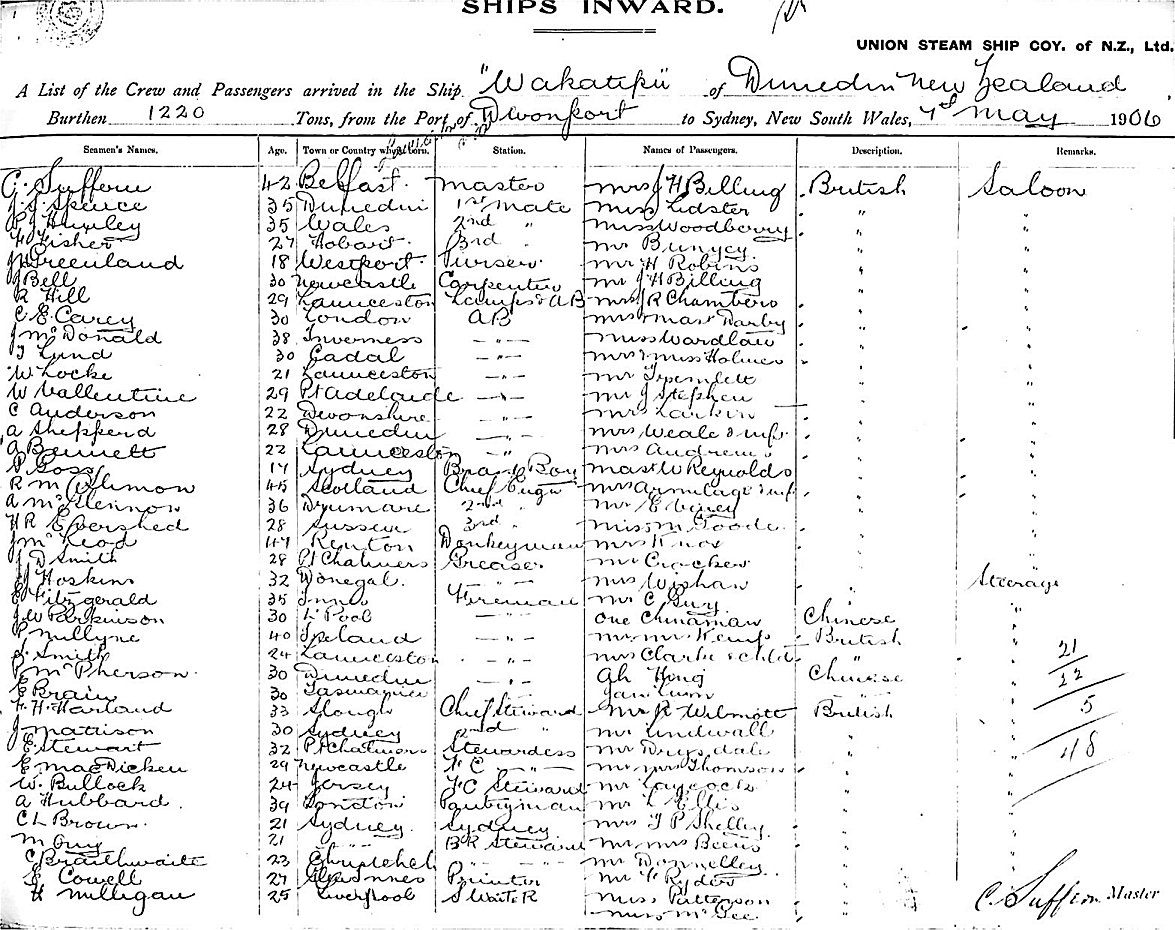 SHIPS INWARD.
UNION STEAM SHIP COY. of N.Z., Ltd.
A List of the Crew and Passengers arrived in the Ship "Wakatipu" of Dunedin New Zealand
Burthen 1220 Tons, from the Port of Devonport to Sydney, New South Wales, 1st May 1906
Seamen's Names. Age. Town or Country where born. Station. Names of Passengers. Description. Remarks.
C. Suffern 42 Belfast. Master Mrs J H Billing British Saloon
J. S. Spence 35 Dunedin 1st Mate Miss Lidster " "
P J Huxley 35 Wales 2nd " Miss Woodberry " "
H Fisher 27 Hobart. 3rd " Mr Bunycy " "
J H Greenland 18 Westport. Purser. Mr H Robins " "
J Bell 30 Newcastle Carpenter Mr J H Billing " "
R Hill 29 Launceston Lamps & AB Mrs J R Chambers " "
C. E. Carey 30 London AB Mrs & Mast Darby " "
J McDonald 38 Inverness " Miss Wardlaw " "
T Lund 30 " Mrs & Miss Holmes " "
W Locke 21 Launceston " Mr " "
W Vallentine 29 Pt Adelaide " Mr J Stephen " "
C Anderson 22 Devonshire " Mrs Larkin " "
A Shepperd 28 Dunedin " Mrs Weale & inf. " "
A Bennett 22 Launceston " Mrs Andrews " "
P Goss 17 Sydney Brass Boy Mast W Reynolds " "
R M 45 Scotland Chief Engr Mrs Armitage & inf. " "
A McGlennon 36 Drumare 2nd " Mr E " "
H R Evershed 28 Sussex 3rd " Miss M Goode " "
J McLeod 47 Renton Donkeyman Mrs Knox " "
J D Smith 28 Pt Chalmers Greaser Mr Crocker " "
J Hoskins 32 Donegal. " Mrs Wishaw " Steerage
E Fitzgerald 35 Fireman Mr C Guy " "
J W Parkinson 30 L'Pool " One Chinaman Chinese "
P Millyne 40 Ireland " Mr Mrs Kemp British "
J. Smith 24 Launceston " Mrs Clarke & chld. " 21
P McPherson 30 Dunedin " Ah Hing Chinese 22
E Brain 30 Tasmania " "
F. H. Harland 33 Slough Chief Steward Mr R Wilmott British 5
J Mattison 30 Sydney 2nd " Mr Lindwall " "
E Stewart 32 Pt Chalmers Stewardess Mr Drysdale " 48
E MacDicken 29 Newcastle F C " Mr Mrs Thomson " "
W. Bullock 24 Jersey F C Steward Mr Laycock " "
A Hubbard. 39 London Pantryman Mr L Ellis " "
C L Brown. 21 Sydney. Sydney Mrs T P Shelley " "
M Guy 21 " BR Steward Mr Mrs Beers " "
C Braithwaite 23 Christchch " Mr Donnelley " "
E Cowell 27 Printer Mr F Ryder " "
H Milligan 25 Liverpool S Waiter Miss Patterson " C. Suffern Master
Miss McGee "